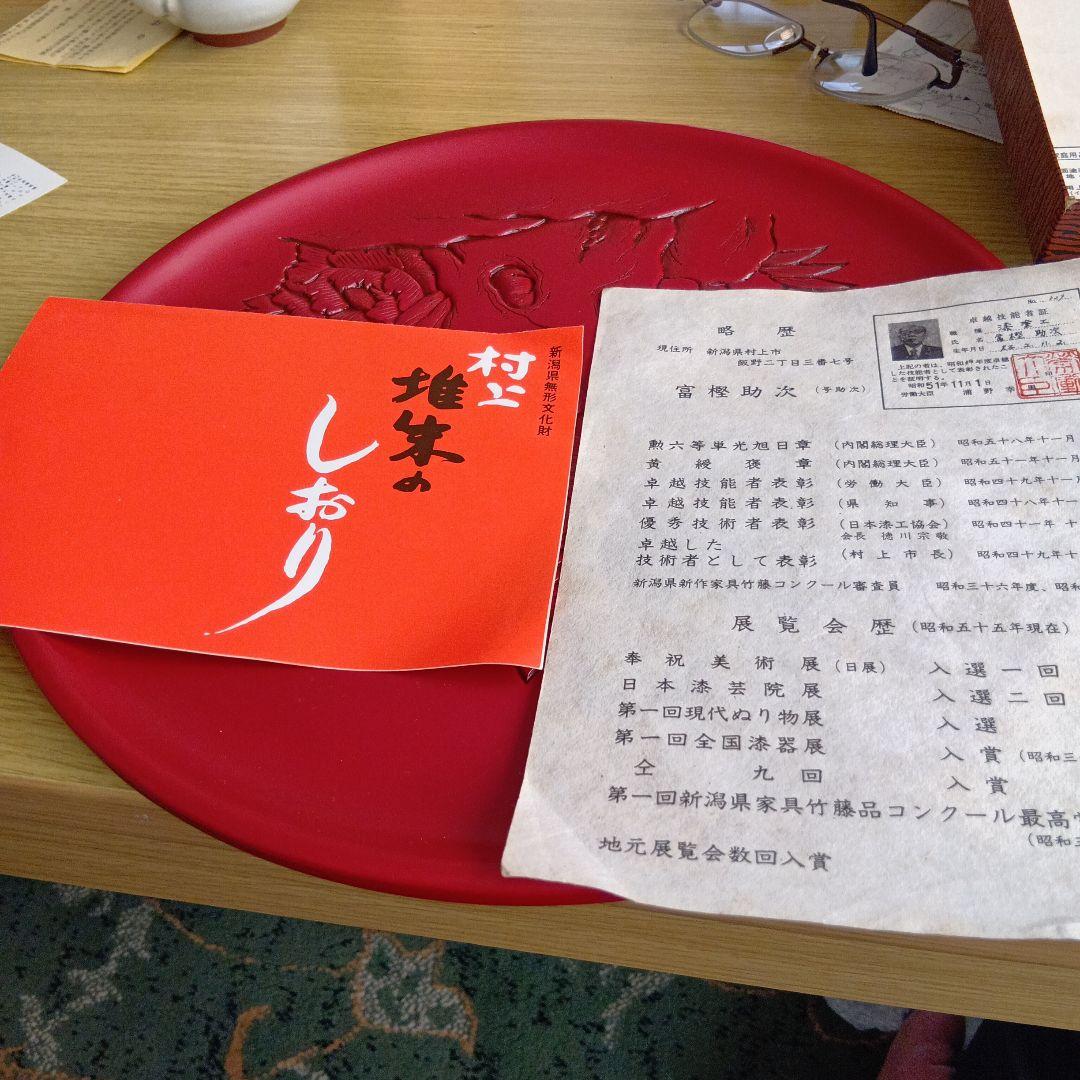 新潟県無形文化財
村上
堆朱の
しおり
略歴
現住所 新潟県村上市
飯野二丁目三番七号
富樫助次 (号助次)
卓越技能者証
職種 漆塗工
氏名 富樫助次
生年月日
上記の者は、昭和49年度卓越
した技能者として表彰されたこ
とを証明する。
昭和51年11月1日
労働大臣 浦野幸
勲六等単光旭日章 (内閣総理大臣) 昭和五十八年十一月
黄綬褒章 (内閣総理大臣) 昭和五十一年十一月
卓越技能者表彰 (労働大臣) 昭和四十九年十一月
卓越技能者表彰 (県知事) 昭和四十八年十一
優秀技術者表彰 (日本漆工協会) 昭和四十一年十
会長 徳川宗敬
卓越した
技術者として表彰 (村上市長) 昭和四十九年十
新潟県新作家具竹藤コンクール審査員 昭和三十六年度、昭和
展覧会歴 (昭和五十五年現在)
奉祝美術展(日展) 入選一回
日本漆芸院展 入選二回
第一回現代ぬり物展 入選
第一回全国漆器展 入賞 (昭和三
仝 九回 入賞
第一回新潟県家具竹藤品コンクール最高
(昭和三
地元展覧会数回入賞